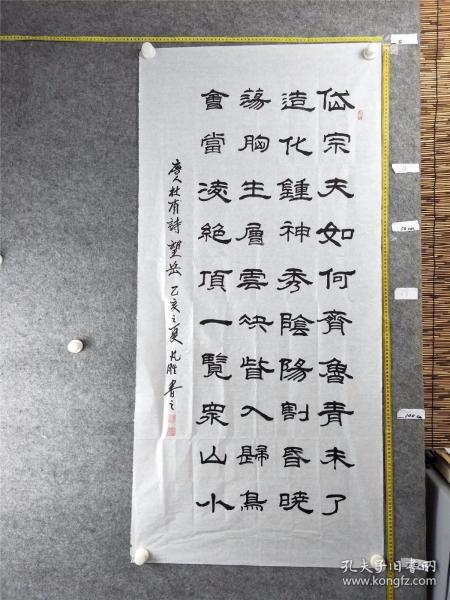 岱宗夫如何齊魯青未了
造化鍾神秀陰陽割昏曉
蕩胸生層雲決眥入歸鳥
會當凌絕頂一覽眾山小
唐人杜甫詩望岳乙亥之夏書之
50cm
100cm
孔夫子旧书网
www.kongfz.com